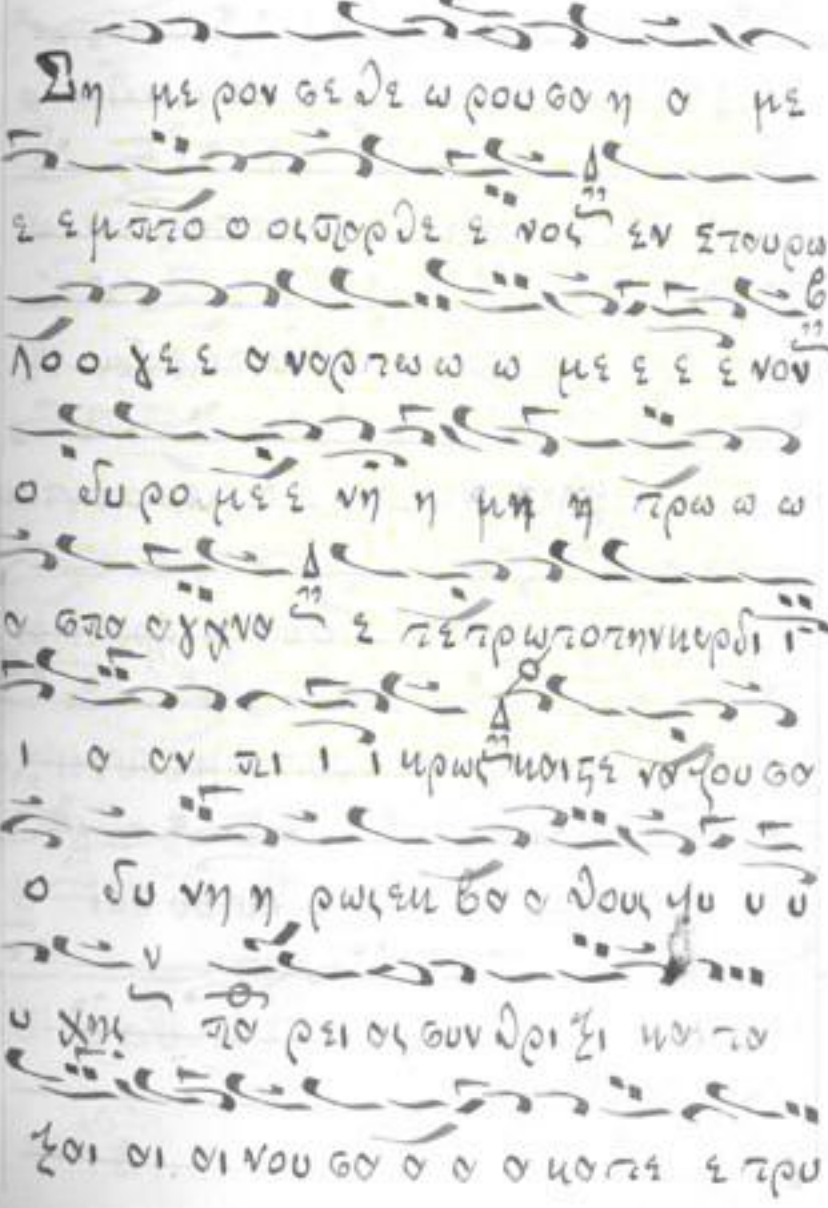 Ση με ρον σε θε ω ρου σα η α με
ε ε μπτο ο ος παρ θε ε νος εν Σταυρω
Λο ο γε ε α ναρ τω ω ω με ε ε ε νον
ο δυ ρο με ε νη η μη η τρω ω ω
α σπα α γχνα ε τε τρω το την καρ δι ι
ι α αν πι ι ι κρως και στε να ζου σα
ο δυ νη η ρως εκ βα α θους ψυ υ υ
υ χης πα ρει ας συν θρι ξι και τα
ξαι αι αι αι νου σα α α α κα τε ε τρυ